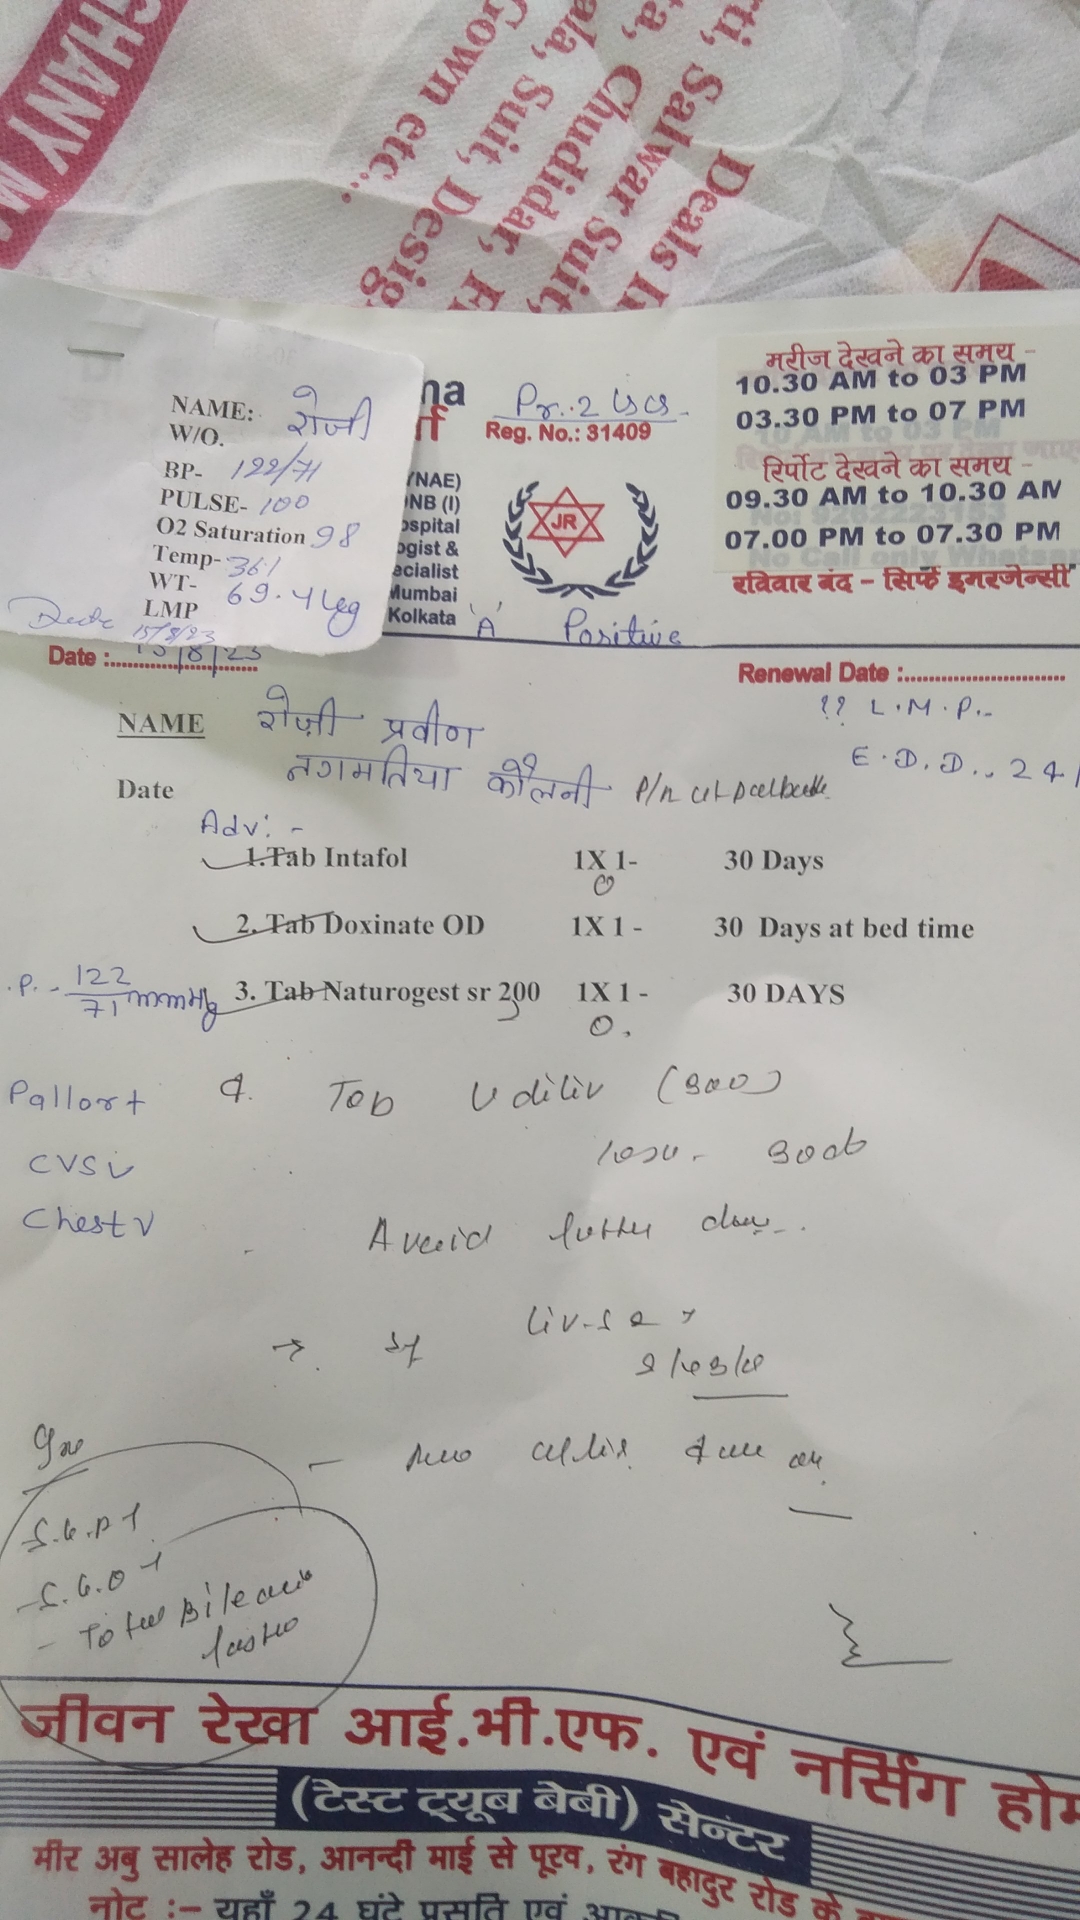 GHANY M
rti, Salwar Suit,
ta, Chudidar,
ala, Suit, Desig
Gown etc..
Deals I
NAME: रोजी
W/O.
BP- 122/71
PULSE- 100
O2 Saturation 98
Temp- 36.1
WT- 69.4 kg
LMP
Date 15/8/23
na
Pr. 2 LSCS.
Reg. No.: 31409
YNAE)
NB (I)
ospital
ogist &
ecialist
Mumbai
Kolkata
JR
'A' Positive
मरीज देखने का समय -
10.30 AM to 03 PM
03.30 PM to 07 PM
रिर्पोट देखने का समय -
09.30 AM to 10.30 AM
07.00 PM to 07.30 PM
रविवार बंद - सिर्फ इमरजेन्सी
Date :.......15/8/23
Renewal Date :............................
?? L.M.P..
NAME रोज़ी प्रवीण
E.D.D.. 24/
नगमतिया कौलनी
Date
Adv: -
1.Tab Intafol 1X 1- 30 Days
2. Tab Doxinate OD 1X 1 - 30 Days at bed time
.P. - 122/71 mmHg
3. Tab Naturogest sr 200 1X 1 - 30 DAYS
Pallor +
4. Tab Udiliv (300)
CVS ✓
Chest ✓
Avoid
→ Sy Liv-52
S.G.P.T
S.G.O.T
- Total Bi
जीवन रेखा आई.भी.एफ. एवं नर्सिंग होम
(टेस्ट ट्यूब बेबी) सेन्टर
मीर अबु सालेह रोड, आनन्दी माई से पूरव, रंग बहादुर रोड के
नोट :- यहाँ 24 घंटे प्रसूति एवं